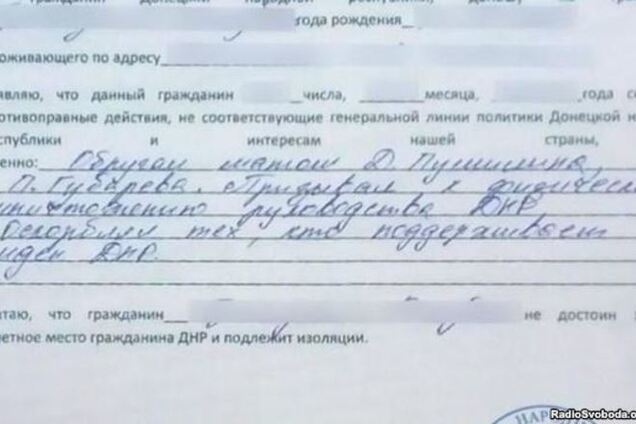 граждании Донецкой Народной Республики,
года рождения
оживающего по адресу
являю, что данный гражданин числа, месяца, года со
отивоправные действия, не соответствующие генеральной линии политики Донецкой н
спублики и интересам нашей страны,
енно: Обругал матом Д. Пушилина,
П. Губарева. Призывал к физическ
уничтожению руководства ДНР
Оскорблял тех, кто поддерживает
идеи ДНР.
таю, что гражданин не достоин
етное место гражданина ДНР и подлежит изоляции.
НАРОД
RadioSvoboda.o